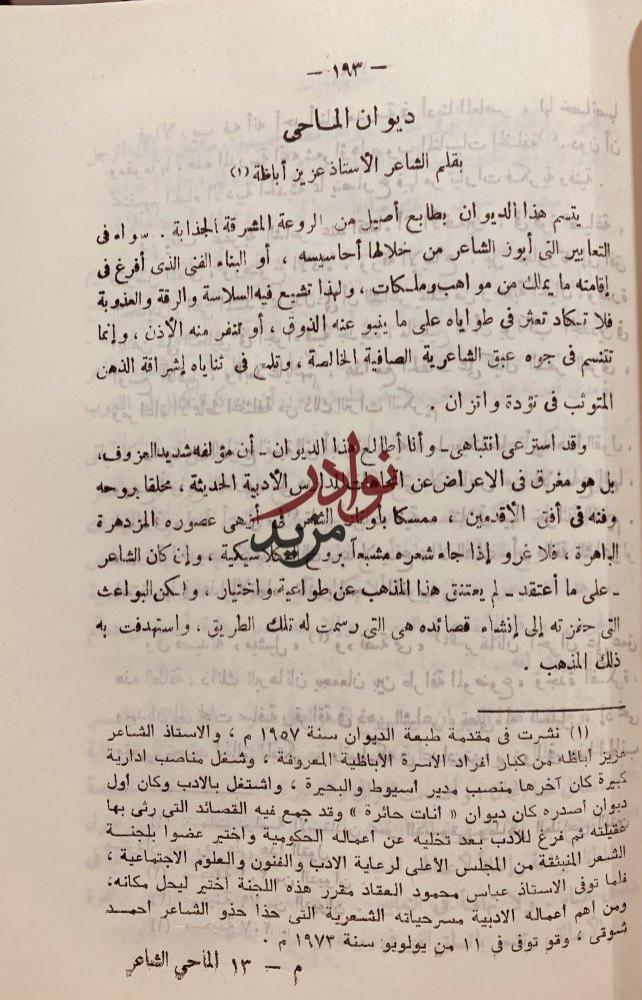 — ١٩٣ —
ديوان الماحى
بقلم الشاعر الأستاذ عزيز أباظة (١)
يتسم هذا الديوان بطابع أصيل من الروعة المشرقة الجذابة . سواء فى
التعابير التى أبوز الشاعر من خلالها أحاسيسه ، أو البناء الفنى الذى أفرغ فى
إقامته ما يملك من مواهب وملكات ، ولهذا تشيع فيه السلاسة والرقة والعذوبة
فلا تكاد تعثر فى طواياه على ما ينبو عنه الذوق ، أو تنفر منه الأذن ، وإنما
تتنسم فى جوه عبق الشاعرية الصافية الخالصة ، وتلمح فى ثناياه إشراقة الذهن
المتوثب فى تؤدة واتزان .
وقد استرعى انتباهى ـ وأنا أطالع هذا الديوان ـ أن مؤلفه شديد العزوف،
بل هو مغرق فى الإعراض عن اتجاهات المدارس الأدبية الحديثة ، محلقا بروحه
وفنه فى أفق الأقدمين ، ممسكا بأوتار الشعر فى أزهى عصوره المزدهرة
الباهرة ، فلا غرو إذا جاء شعره مشبعاً بروح الكلاسيكية ، وإن كان الشاعر
ـ على ما أعتقد ـ لم يعتنق هذا المذهب عن طواعية واختيار ، ولكن البواعث
التى حفزته إلى إنشاء قصائده هى التى رسمت له تلك الطريق ، واستهدفت به
ذلك المذهب .
(١) نشرت فى مقدمة طبعة الديوان سنة ١٩٥٧ م ، والاستاذ الشاعر
عزيز أباظه من كبار افراد الاسرة الاباظية المعروفة ، وشغل مناصب ادارية
كبيرة كان آخرها منصب مدير اسيوط والبحيرة ، واشتغل بالادب وكان اول
ديوان أصدره كان ديوان « انات حائرة » وقد جمع فيه القصائد التى رثى بها
عقيلته ثم فرغ للأدب بعد تخليه عن اعماله الحكومية واختير عضوا بلجنة
الشعر المنبثقة من المجلس الأعلى لرعاية الادب والفنون والعلوم الاجتماعية ،
فلما توفى الاستاذ عباس محمود العقاد مقرر هذه اللجنة اختير ليحل مكانه،
ومن اهم اعماله الادبية مسرحياته الشعرية التى حذا حذو الشاعر احمد
شوقى ، وقو توفى فى ١١ من يولويو سنة ١٩٧٣ م .
م — ١٣ الماحي الشاعر
نوادر
مزيد